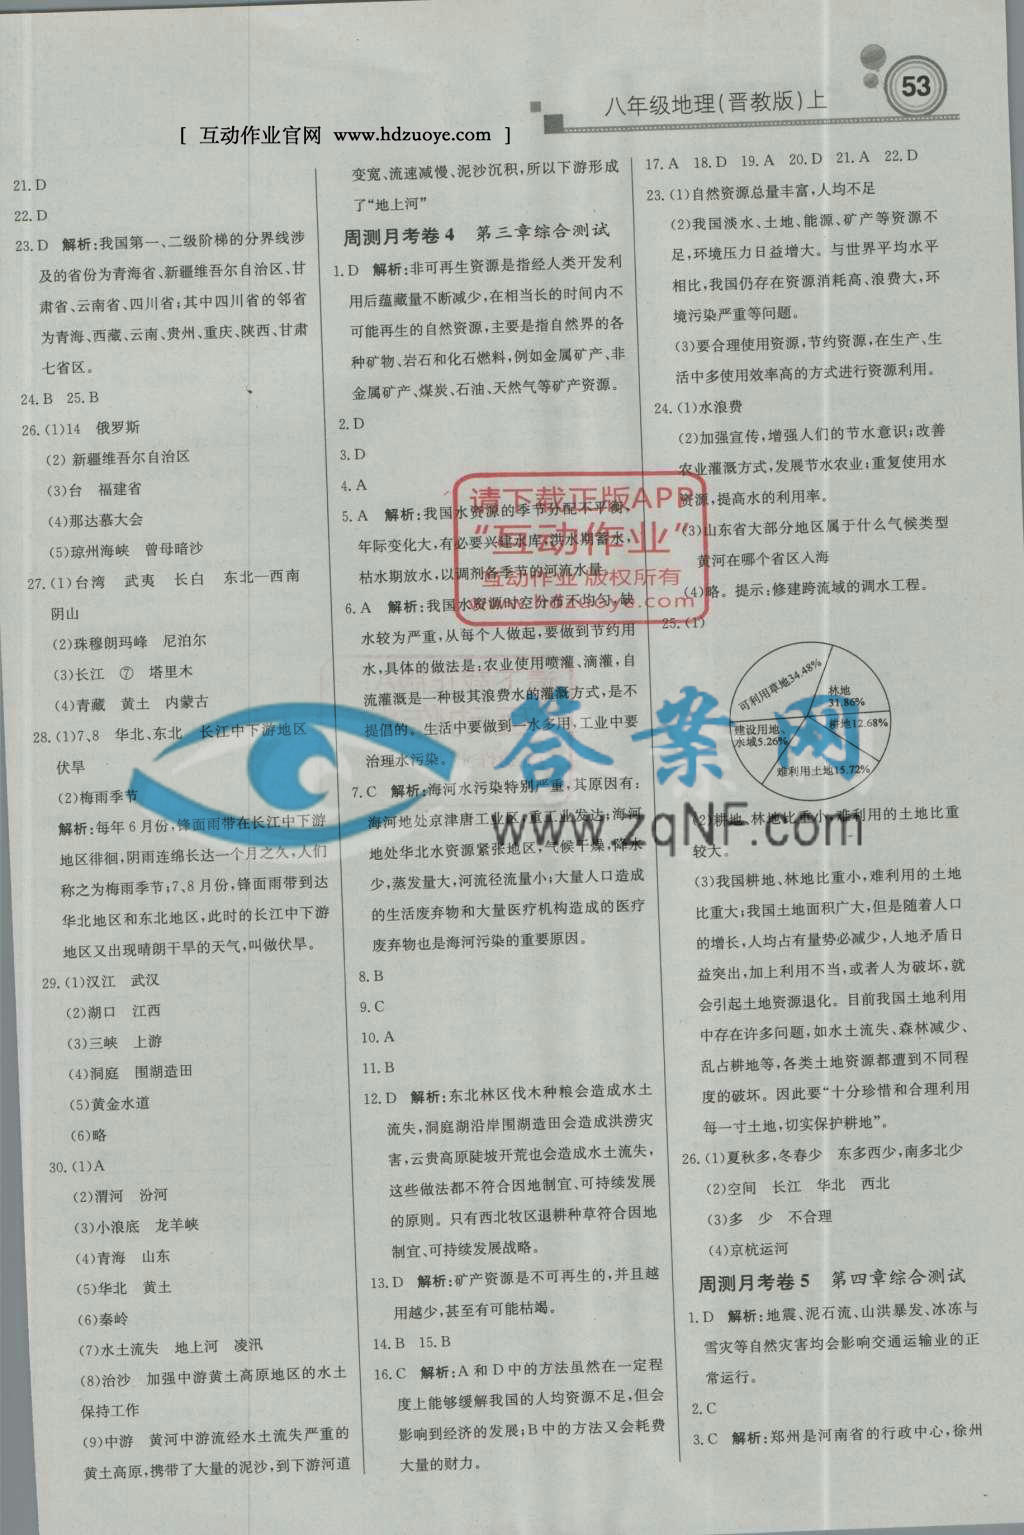 八年级地理(晋教版)上
53
[ 互动作业官网 www.hdzuoye.com ]
21.D
22.D
23.D 解析:我国第一、二级阶梯的分界线涉
及的省份为青海省、新疆维吾尔自治区、甘
肃省、云南省、四川省;其中四川省的邻省
为青海、西藏、云南、贵州、重庆、陕西、甘肃
七省区。
24.B 25.B
26.(1)14 俄罗斯
(2) 新疆维吾尔自治区
(3)台 福建省
(4)那达慕大会
(5)琼州海峡 曾母暗沙
27.(1)台湾 武夷 长白 东北—西南
阴山
(2)珠穆朗玛峰 尼泊尔
(3)长江 ⑦ 塔里木
(4)青藏 黄土 内蒙古
28.(1)7、8 华北、东北 长江中下游地区
伏旱
(2)梅雨季节
解析:每年6月份,锋面雨带在长江中下游
地区徘徊,阴雨连绵长达一个月之久,人们
称之为梅雨季节;7、8月份,锋面雨带到达
华北地区和东北地区,此时的长江中下游
地区又出现晴朗干旱的天气,叫做伏旱。
29.(1)汉江 武汉
(2)湖口 江西
(3)三峡 上游
(4)洞庭 围湖造田
(5)黄金水道
(6)略
30.(1)A
(2)渭河 汾河
(3)小浪底 龙羊峡
(4)青海 山东
(5)华北 黄土
(6)秦岭
(7)水土流失 地上河 凌汛
(8)治沙 加强中游黄土高原地区的水土
保持工作
(9)中游 黄河中游流经水土流失严重的
黄土高原,携带了大量的泥沙,到下游河道
变宽、流速减慢、泥沙沉积,所以下游形成
了“地上河”
周测月考卷4 第三章综合测试
1.D 解析:非可再生资源是指经人类开发利
用后蕴藏量不断减少,在相当长的时间内不
可能再生的自然资源,主要是指自然界的各
种矿物、岩石和化石燃料,例如金属矿产、非
金属矿产、煤炭、石油、天然气等矿产资源。
2.D
3.D
4.A
5.A 解析:我国水资源的季节分配不平衡、
年际变化大,有必要兴建水库,洪水期蓄水,
枯水期放水,以调剂各季节的河流水量。
6.A 解析:我国水资源时空分布不均匀,缺
水较为严重,从每个人做起,要做到节约用
水,具体的做法是:农业使用喷灌、滴灌,自
流灌溉是一种极其浪费水的灌溉方式,是不
提倡的。生活中要做到一水多用,工业中要
治理水污染。
7.C 解析:海河水污染特别严重,其原因有:
海河地处京津唐工业区,重工业发达;海河
地处华北水资源紧张地区,气候干燥,降水
少,蒸发量大,河流径流量小;大量人口造成
的生活废弃物和大量医疗机构造成的医疗
废弃物也是海河污染的重要原因。
8.B
9.C
10.A
11.B
12.D 解析:东北林区伐木种粮会造成水土
流失,洞庭湖沿岸围湖造田会造成洪涝灾
害,云贵高原陡坡开荒也会造成水土流失,
这些做法都不符合因地制宜、可持续发展
的原则。只有西北牧区退耕种草符合因地
制宜、可持续发展战略。
13.D 解析:矿产资源是不可再生的,并且越
用越少,甚至有可能枯竭。
14.B 15.B
16.C 解析:A和D中的方法虽然在一定程
度上能够缓解我国的人均资源不足,但会
影响到经济的发展;B中的方法又会耗费
大量的财力。
17.A 18.D 19.A 20.D 21.A 22.D
23.(1)自然资源总量丰富,人均不足
(2)我国淡水、土地、能源、矿产等资源不
足,环境压力日益增大。与世界平均水平
相比,我国仍存在资源消耗高、浪费大,环
境污染严重等问题。
(3)要合理使用资源,节约资源,在生产、生
活中多使用效率高的方式进行资源利用。
24.(1)水浪费
(2)加强宣传,增强人们的节水意识;改善
农业灌溉方式,发展节水农业;重复使用水
资源,提高水的利用率。
(3)山东省大部分地区属于什么气候类型
黄河在哪个省区入海
(4)略。提示:修建跨流域的调水工程。
25.(1)
可利用草地34.48%
林地
31.86%
耕地12.68%
建设用地、
水域5.26%
难利用土地15.72%
(2)耕地、林地比重小,难利用的土地比重
较大。
(3)我国耕地、林地比重小,难利用的土地
比重大;我国土地面积广大,但是随着人口
的增长,人均占有量势必减少,人地矛盾日
益突出,加上利用不当,或者人为破坏,就
会引起土地资源退化。目前我国土地利用
中存在许多问题,如水土流失、森林减少、
乱占耕地等,各类土地资源都遭到不同程
度的破坏。因此要“十分珍惜和合理利用
每一寸土地,切实保护耕地”。
26.(1)夏秋多,冬春少 东多西少,南多北少
(2)空间 长江 华北 西北
(3)多 少 不合理
(4)京杭运河
周测月考卷5 第四章综合测试
1.D 解析:地震、泥石流、山洪暴发、冰冻与
雪灾等自然灾害均会影响交通运输业的正
常运行。
2.C
3.C 解析:郑州是河南省的行政中心,徐州
请下载正版APP
“互动作业”
互动作业 版权所有
www.hdzuoye.com
答案网
www.zqNF.com